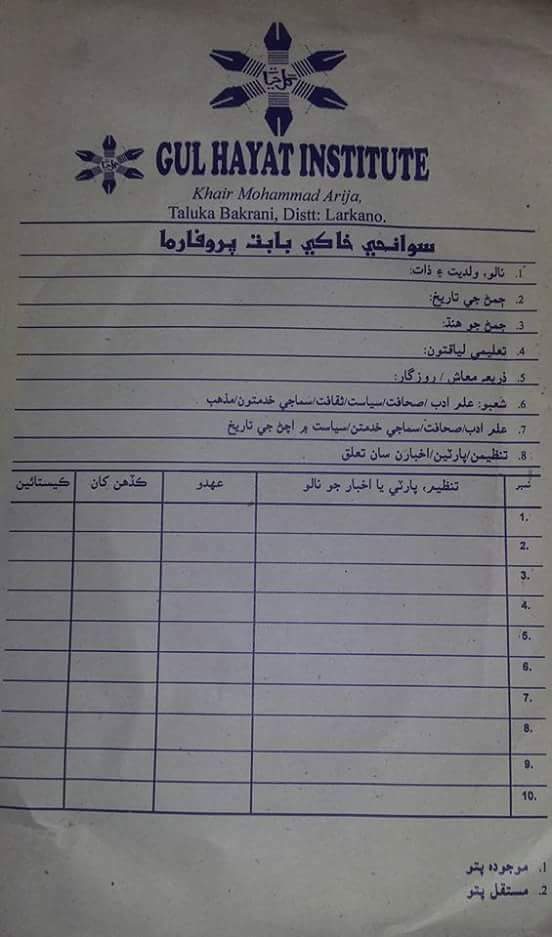 گل حيات
گل حيات
GUL HAYAT INSTITUTE
Khair Mohammad Arija,
Taluka Bakrani, Distt: Larkano.
سوانحي خاڪي بابت پروفارما
1. نالو، ولديت ۽ ذات:
2. ڄمڻ جي تاريخ:
3. ڄمڻ جو هنڌ:
4. تعليمي لياقتون:
5. ذريعہ معاش / روزگار:
6. شعبو: علم ادب /صحافت/سياست/ثقافت/سماجي خدمتون/مذهب
7. علم ادب/صحافت/سماجي خدمتن/سياست ۾ اچڻ جي تاريخ
8. تنظيمن/پارٽين/اخبارن سان تعلق
نمبر تنظيم، پارٽي يا اخبار جو نالو عهدو ڪڏهن کان ڪيستائين
1.
2.
3.
4.
5.
6.
7.
8.
9.
10.
1. موجوده پتو
2. مستقل پتو